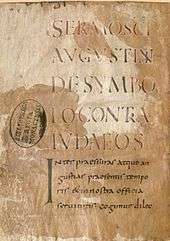 SERMOSCI
AUGUSTINI
DESYMBO
LOCONTRA
IUDAEOS
Inter praessuras atque an
gustias praesentis tempo
ris & nostra officia
seruitutis cogimur dilec